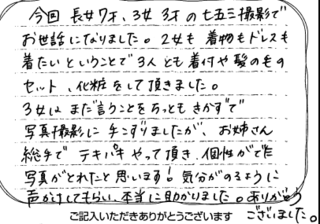 今回 長女7才、3女 3才の七五三撮影で
お世話になりました。2女も 着物もドレスも
着たいということで3人とも着付や髪のもの
セット、化粧をして頂きました。
3女は まだ言うことをちっともきかずで
写真撮影に手こずりましたが、お姉さん
総手で テキパキ やって頂き、個性がでた
写真がとれたと思います！気分がのるように
声かけしてもらい、本当に助かりました。ありがとう
ございました。
ご記入いただきありがとうございます